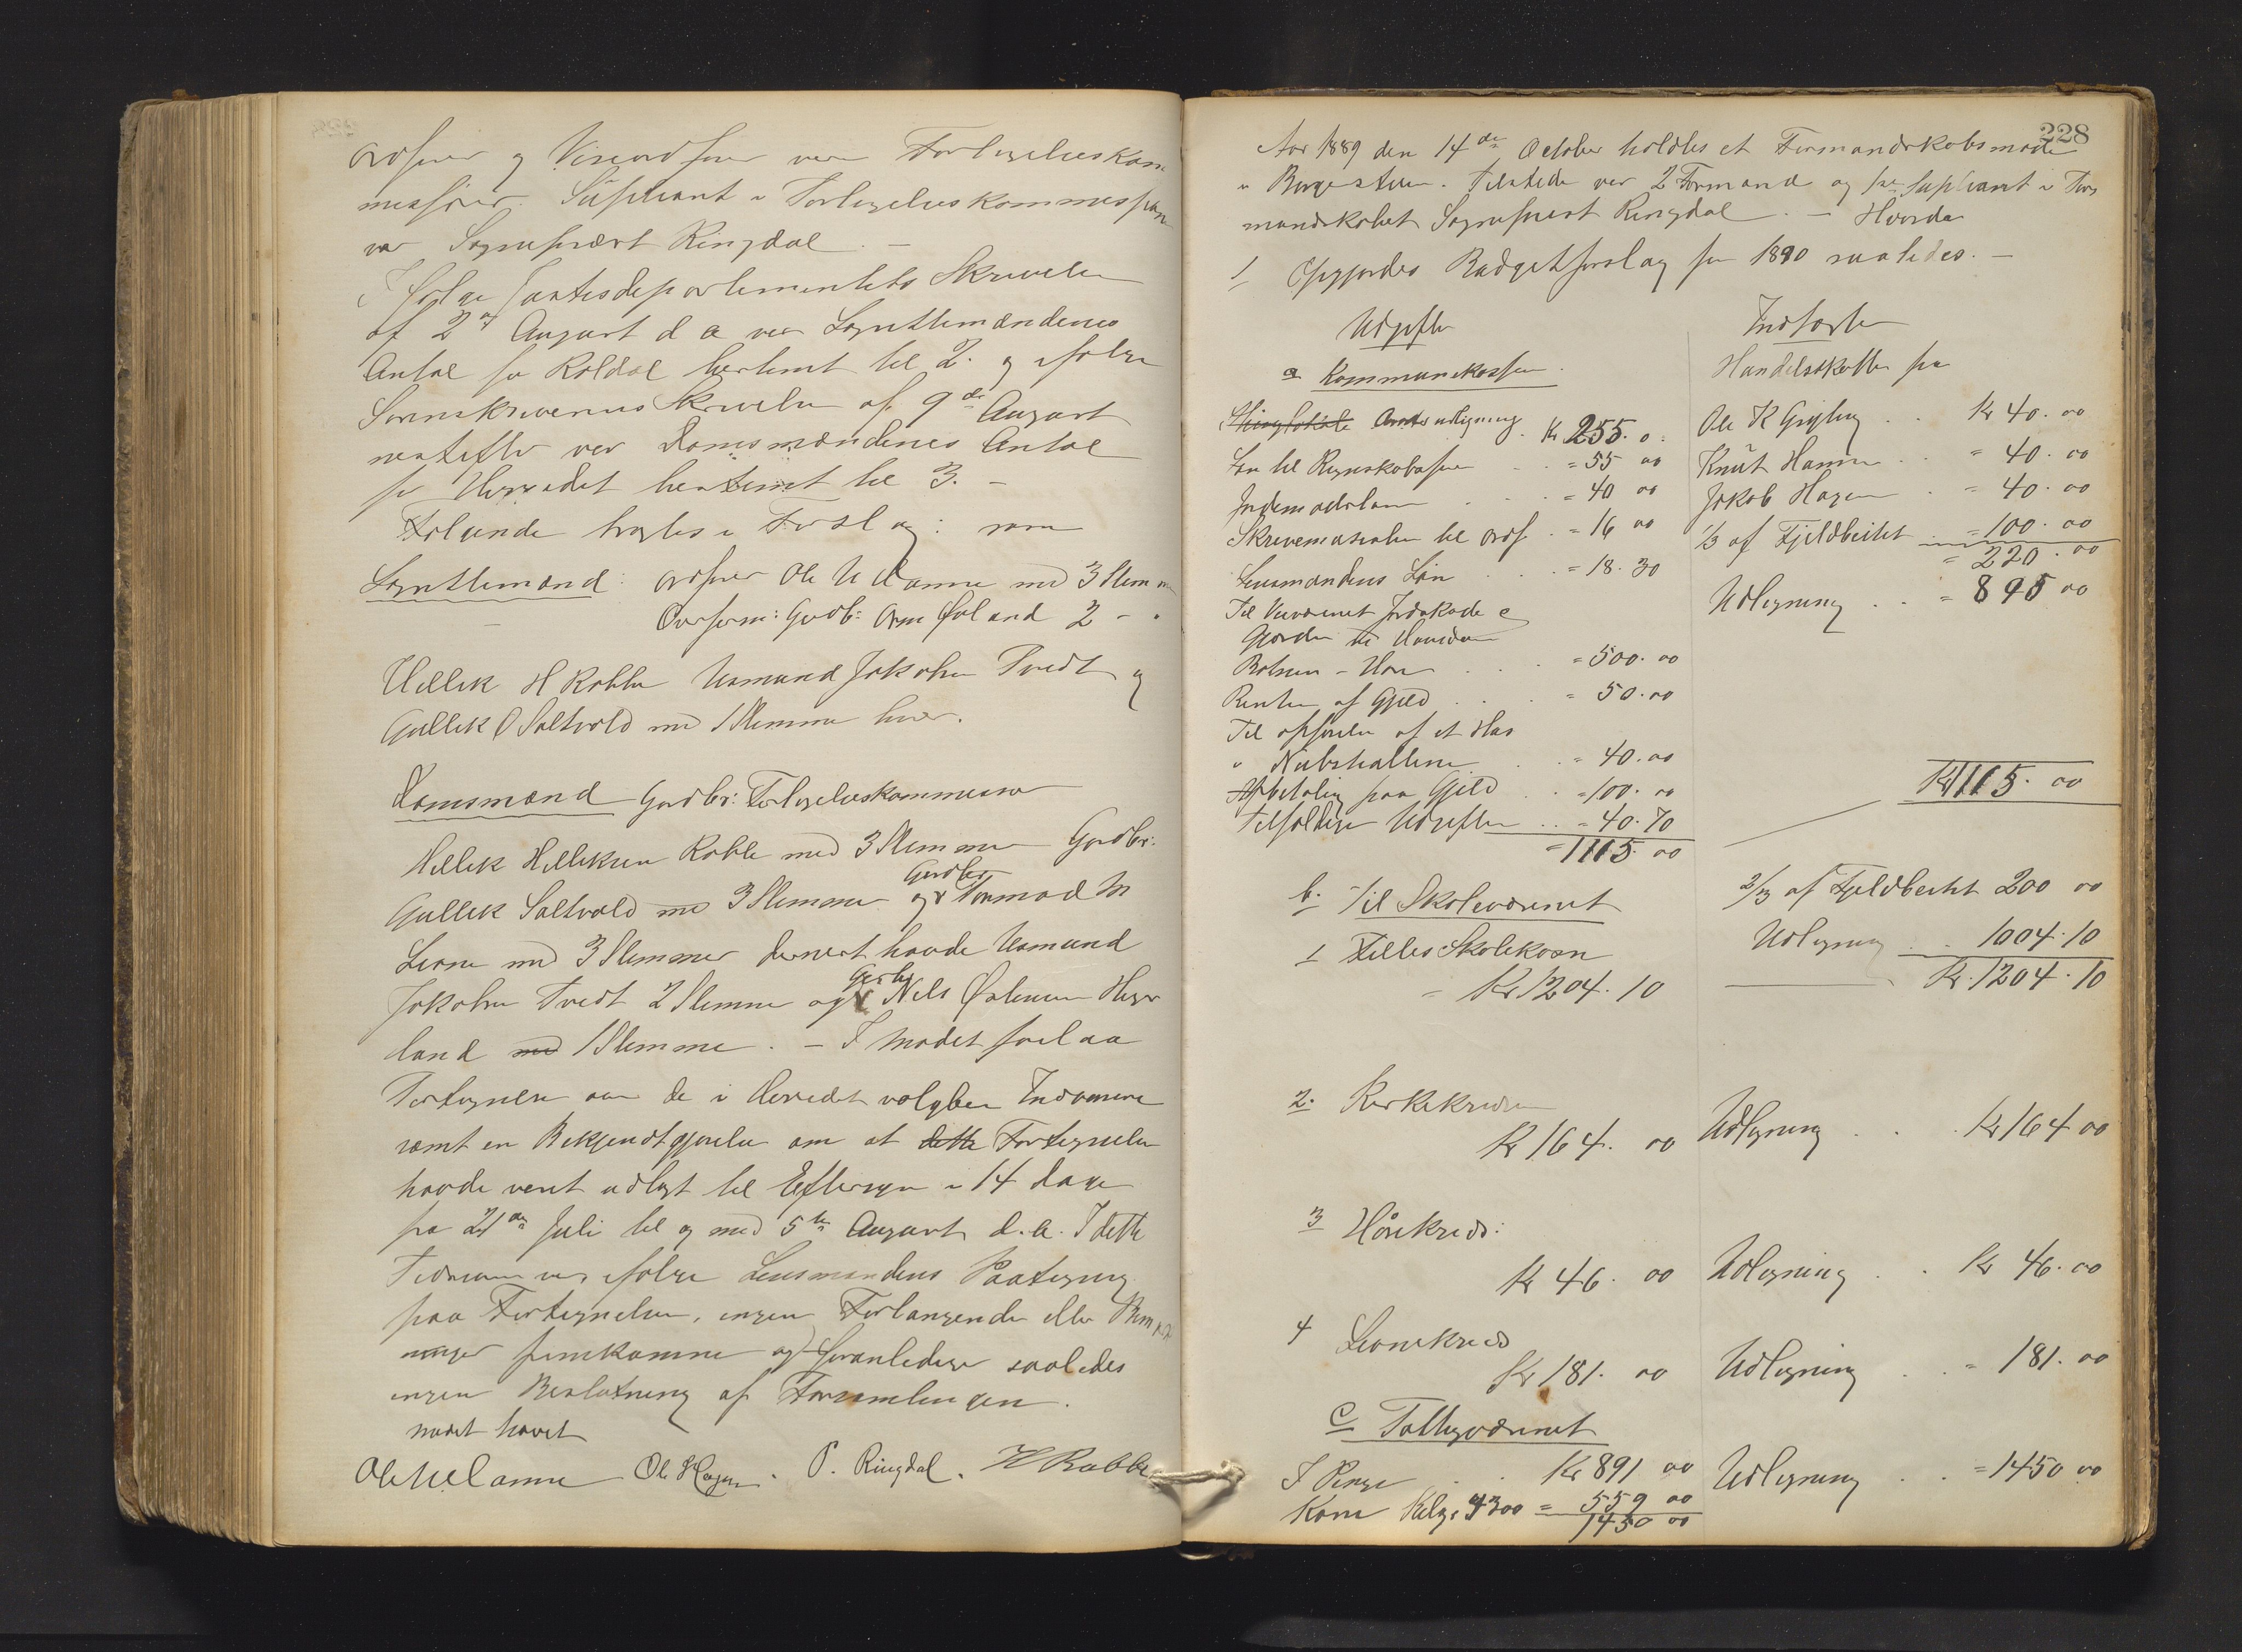 Ordfører og Viseordfører var Forligelseskom
missærer. Supleant i Forligelseskommissionen
var Sognepræst Ringdal. —
I følge Justisdepartementets Skrivelse
af 2den August d a var Lagrettemændenes
Antal for Røldal bestemt til 2. og ifølge
Sorenskriverens Skrivelse af 9de August
næstefter var Domsmændenes Antal
for Herredet bestemt til 3. —
Følgende bragtes i Forslag: som
Lagrettemænd: Ordfører Ole N Hamre med 3 Stemmer
— Gvdb: Orm Øvland 2 — "
Hellik H Rabbe Aamund Jakobsen Tvedt og
Gullik O Saltvold med 1 Stemme hver.
Domsmænd Gordbr: Forligelseskommissær
Hellik Helliksen Rabbe med 3 Stemmer Gordbr:
Gullik Saltvold med 3 Stemmer og Gordbr Tormod M
Lione med 3 Stemmer dernæst havde Aamund
Jakobsen Tvedt 2 Stemmer og Gorbr Nils Østensen Hegr
land med 1 Stemme. — I Mødet forelaa
Fortegnelse over de i Herredet valgbare Indvaanere
samt en Bekjendtgjørelse om at dette Fortegnelse
havde været udlagt til Eftersyn i 14 dage
fra 21de Juli til og med 5te August d.a. I dette
Tidsrum var ifølge Lensmandens Paategning
paa Fortegnelsen, ingen Forlangende eller Bemærk
ninger fremkomne og foranlediger saaledes
ingen Beslutning af Forsamlingen.
mødet hævet
Ole N Hamre Ole Hagen. P. Ringdal. H Rabbe
228
Aar 1889 den 14de October holdtes et Formandskabsmøde
i Borgestuen. Tilstede var 2 Formænd og 1ste Supleant i For
mandskabet Sogneprest Ringdal. — Hvorda
1 Opgjordes Budgetforslag for 1890 saaledes. —
Udgifter
Indtægter
a Kommunekassen.
Handelsskatter fra
Thinglokale Amtsudligning. Kr 255. 0.
Ole K Gryting . . Kr 40. 00
Løn til Regnskabsfører . . = 55 00
Knut Hamre . . = 40. 00
Jordemoderløn . . . = 40 00
Jakob Hagen . = 40. 00
Skrivematerialer til Ordf . = 16 00
1/3 af Fjeldbeitet . = 100. 00
= 220. 00
Lensmandens Løn . . . = 18. 30
Udligning . . = 895 00
Til Veivæsenet Jordskade og
Gjerder
Botnen — Hore . . = 500. 00
Renter af Gjeld . . . = 50. 00
Til opførelse af et Hus
i . = 40. 00
Afbetaling paa Gjeld . . = 100. 00
Kr 1115. 00
Tilfældige Udgifter . . = 40. 70
= 1115. 00
b. Til Skolevæsenet
2/3 af Fjeldbeitet 200 00
1 Fælles Skolekasse
Udligning . . 1004. 10
= Kr 1204. 10
Kr. 1204. 10
2. Kirkekredsen
Kr 164. 00 Udligning . . . Kr 164 00
3 Hårekreds:
Kr 46. 00 Udligning . . Kr 46. 00
4 Lionekreds
Kr 181. 00 Udligning . . = 181. 00
c Fattigvæsenet
I Penge . . Kr 891 00 Udligning . . = 1450 00
Korn Kilgr 4300 = 559 00
1450 00